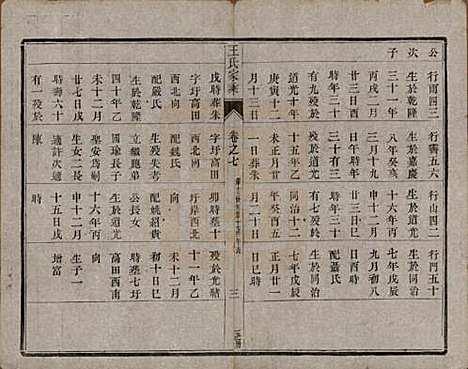 公 行雨四三 行聲五六 行山四二 行門五十
次 生於乾隆 生於嘉慶 生於道光 生於同治
子 三十一年 八年癸亥 十六年丙 七年戊辰
丙戌二月 三月十九 申十二月 九月初八
廿三日酉 日酉時
時年三十 三十有三 時年三十 配聶氏
有九歿於 歿於道光 生於同治
道光十年 同治十二 七年戊辰
庚寅十二 正月廿一
月十三日 一日葬朱 月二十日 日巳時
王氏家乘
卷之七
三
戌時葬朱 字圩高田 卯時墓十 歿於光緒
字圩高田 西北向 圩岸西北 十一年乙
西北向 配魏氏 向 未十二月
配嚴氏 生歿失考 配姚紹貴 初十日巳
生於乾隆 公長女 時墓七圩
四十年乙 國瑜長子 生於道光 高田西南
未十二月 聖安爲嗣 十六年丙 向
生女二長 申十二月 生子一
時壽六十 適許次適 日巳時 增富
有一歿於 陳